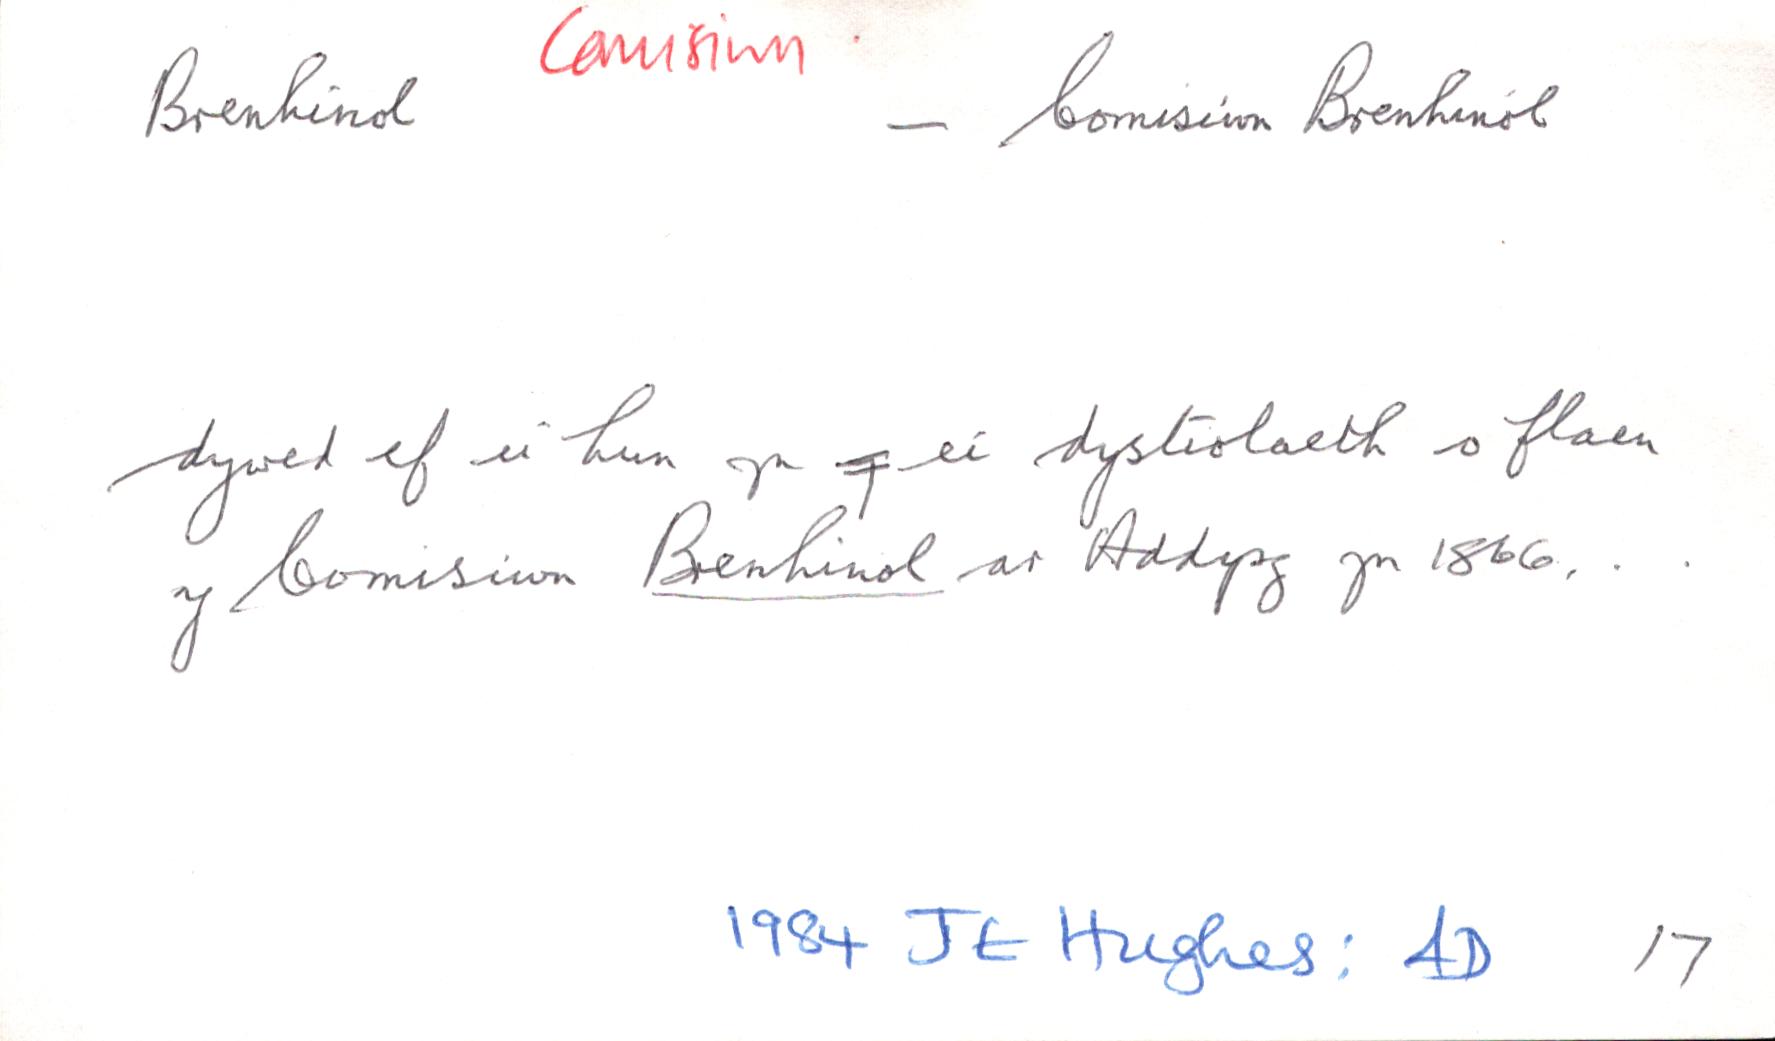 Comisiwn
Brenhinol — Comisiwn Brenhinol
dywed ef ei hun yn ei dystiolaeth o flaen
y Comisiwn Brenhinol ar Addysg yn 1866, . .
1984 J E Hughes: AD 17